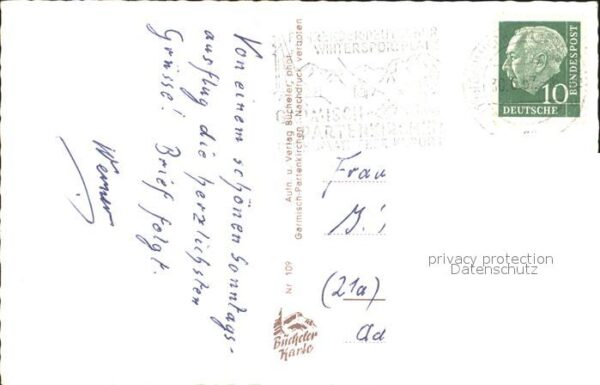 Von einem schönen Sonntags-
ausflug die herzlichsten
Grüsse! Brief folgt.
Werner
Aufn. u. Verlag Bücheler, phot.
Garmisch-Partenkirchen. Nachdruck verboten
Nr 109
Bücheler
Karte
WINTERSPORTPLATZ
GARMISCH
PARTENKIRCHEN
10
DEUTSCHE
BUNDESPOST
Frau
(21a)
privacy protection
Datenschutz